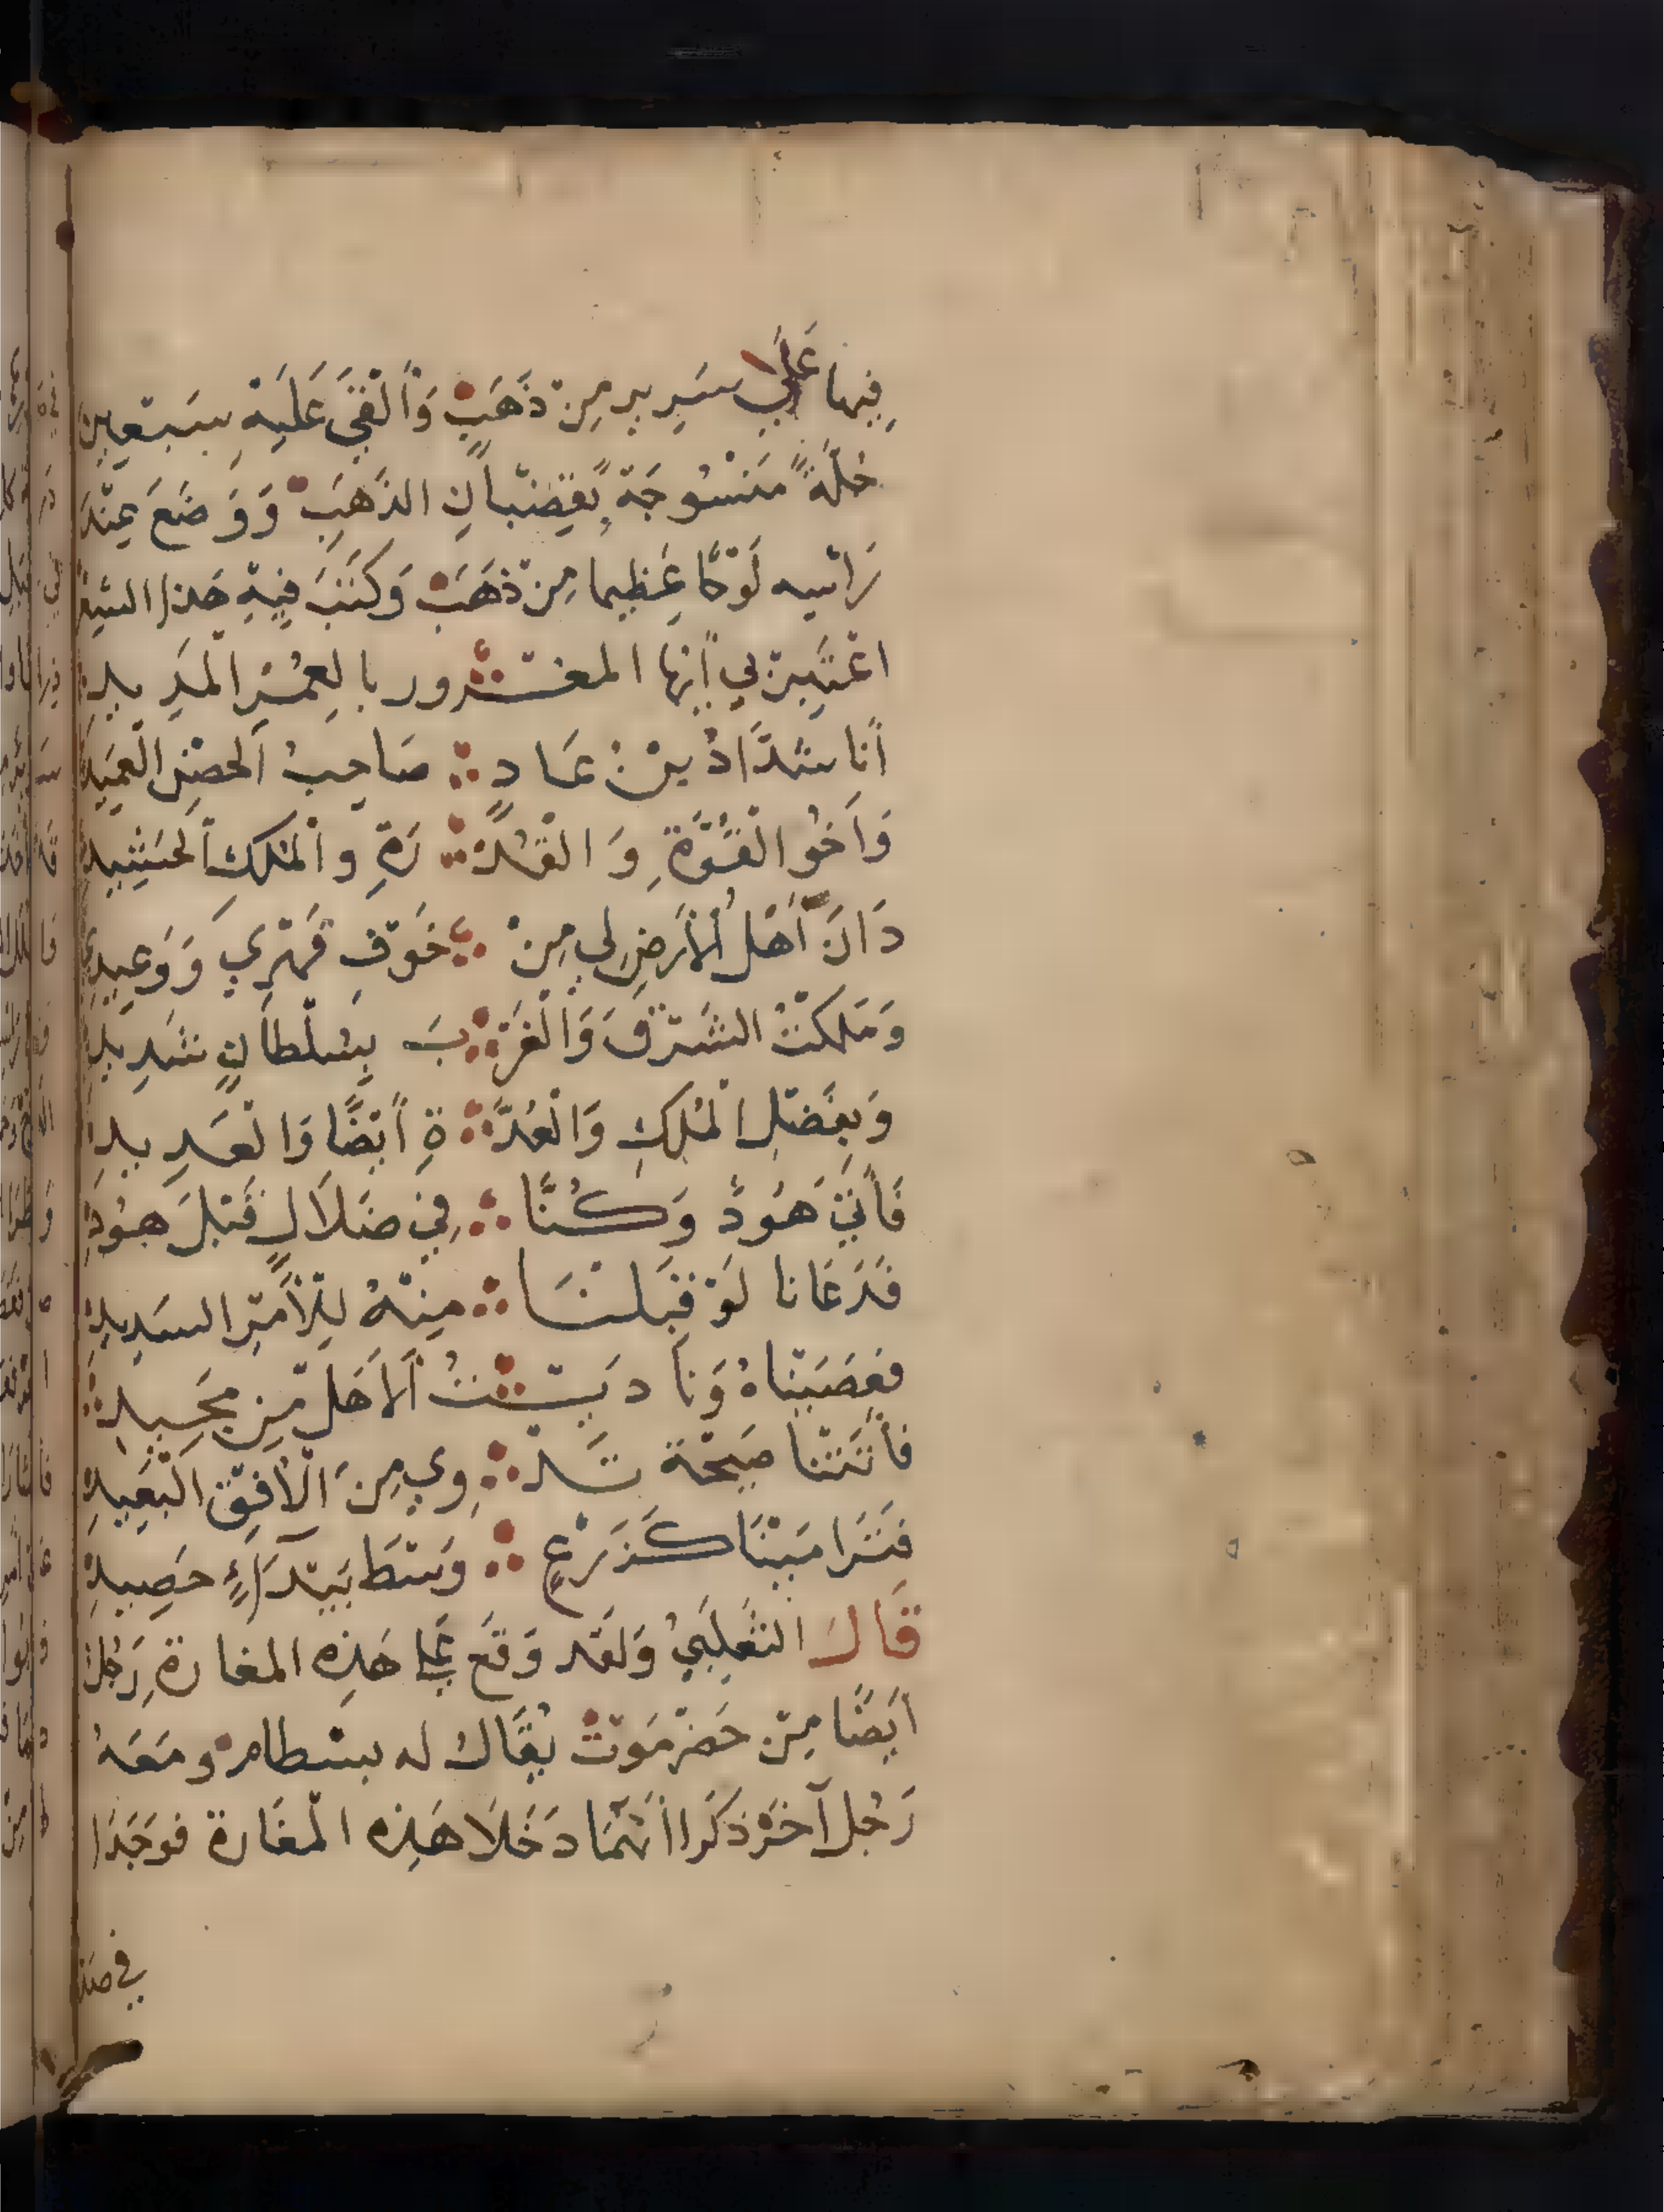 فِيها عَلَى سَرِيرٍ مِنْ ذَهَبٍ وَأَلْقَى عَلَيْهِ سَبْعِين
حُلَّةً مَنْسُوجَةً بِقِضْبَانِ الذَّهَبِ وَوَضَعَ عِنْدَ
رَأْسِهِ لَوْحًا عَظِيما مِنْ ذَهَبٍ وَكَتَبَ فِيْهِ هَذَا الشِّعْر
اعْتَبِرْ بِي أَيُّهَا المَغْـرُور بِالعُمُرِ المَدِيدِ
أَنَا شَدَّادُ بْنُ عَادٍ ∴ صَاحِبُ الحِصْنِ العَمِيدِ
وَأَخُو الْقُوَّةِ وَ الْقُدْ ∴ رَةِ والْمُلْكِ الحَشِيدِ
دَانَ أَهْلُ الأَرْضِ لِي مِنْ ∴ خَوْفِ قَهْرِي وَوَعِيدِي
وَمَلَكْتُ الشَّرْقَ وَالْغَرْ ∴ بَ بِسُلْطَانٍ شَدِيدِ
وَبِفَضْلِ الْمُلْكِ وَالْعُدَّ ∴ ةِ أَيْضًا وَالْعَدِيدِ
فَأَتَى هُودٌ وَكُنَّا ∴ فِي ضَلَالٍ قَبْلَ هُودِ
فَدَعَانا لَوْ قَبِلْنَـا ∴ مِنْهُ لِلْأَمْرِ السَّدِيدِ
فَعَصَيْنَاهُ وَنَادَيْـتُ ∴ أَلَا هَلْ مِنْ مَحِيدِ
فَأَتَتْنَا صَيْحَة تَـدْ ∴ وِي مِنَ الْأُفْقِ الْبَعِيدِ
فَتَرَامَيْنَا كَزَرْعٍ ∴ وَسْطَ بَيْدَاءٍ حَصِيدِ
قَالَ الثَّعْلَبِيُّ وَلَقَد وَقَعَ عَلَى هَذِهِ المغارةِ رَجُلٌ
أَيْضًا مِنْ حَضْرَمَوْتْ يُقَالُ له بسْطام ومَعَهُ
رَجُل آخَرْ ذَكَرَا أَنَّهُمَا دَخَلَا هَذِه الْمَغَارة فَوَجَدَا
في صَدْ